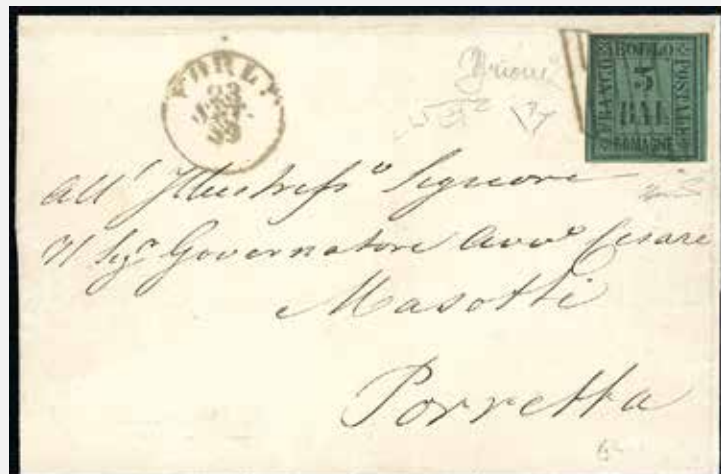 FORLÌ
Grioni
FRANCO BOLLO POSTALE
5
BAI
ROMAGNE
All' Illustress.º Signore
Il Sig.r Governatore Avv.º Cesare
Masotti
Porretta